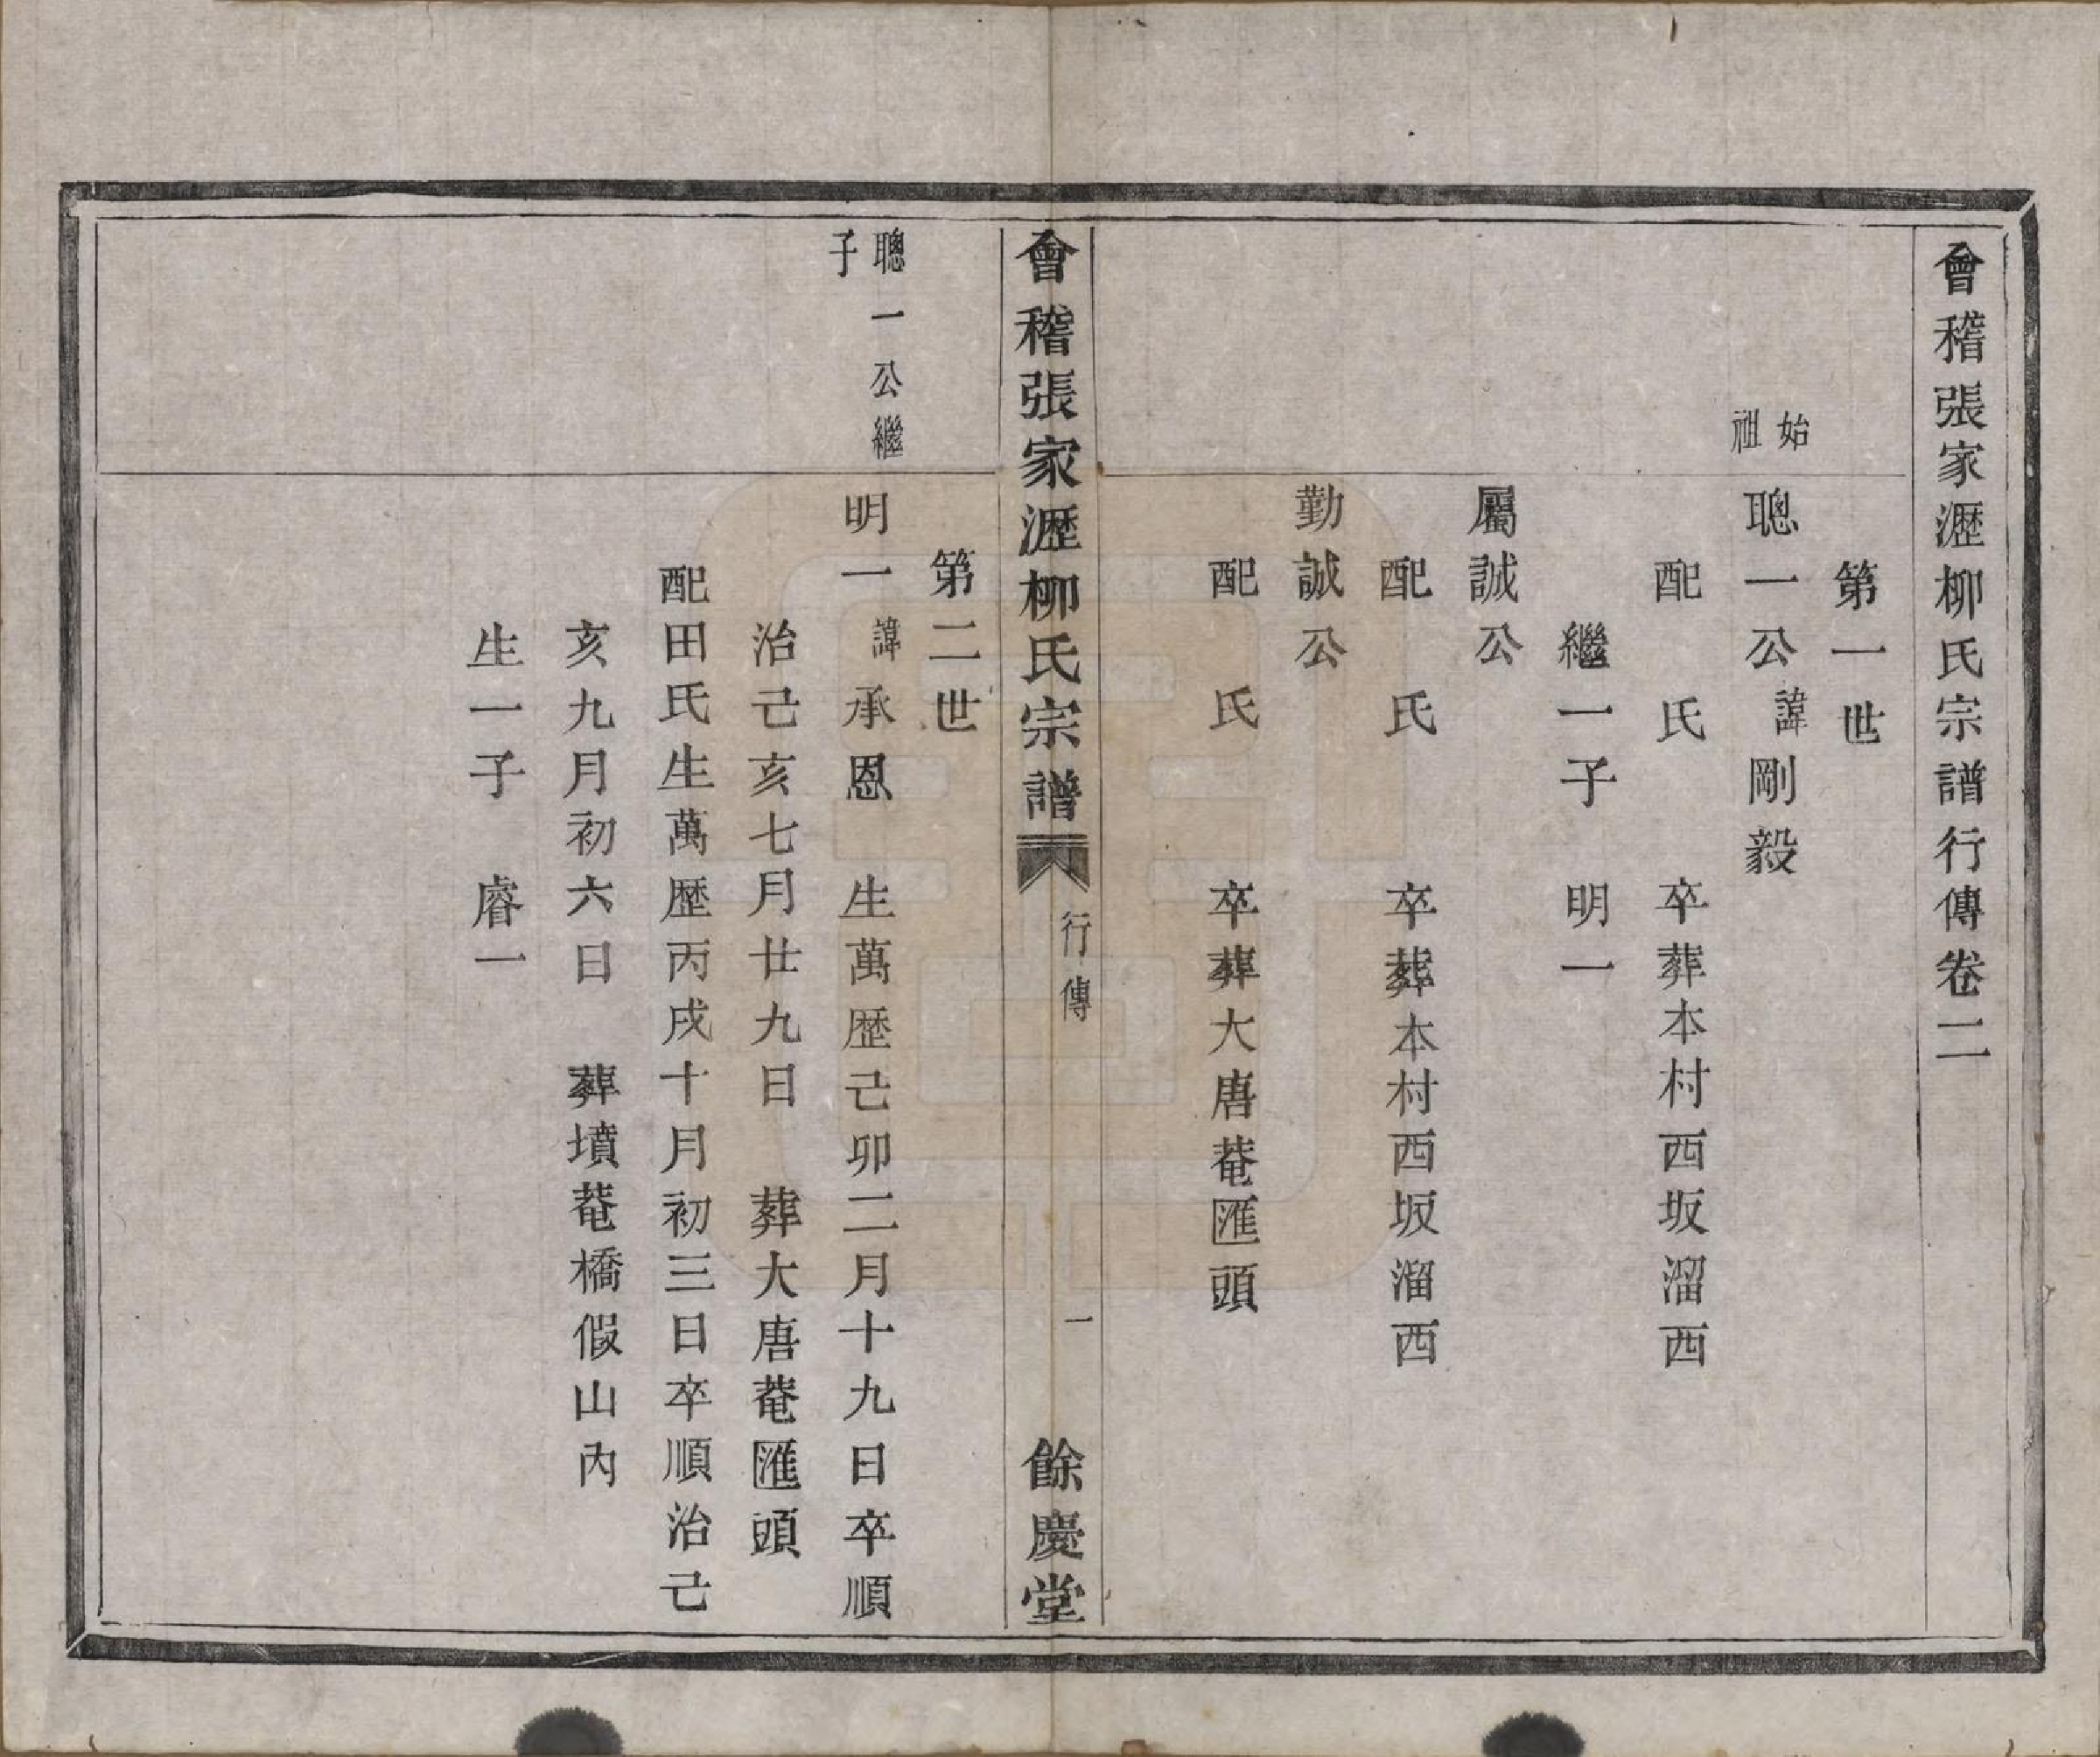 會稽張家瀝柳氏宗譜行傳卷二
第一世
始祖
聰一公諱剛毅
配 氏 卒葬本村西坂溜西
繼一子 明一
屬誠公
配 氏 卒葬本村西坂溜西
勤誠公
配 氏 卒葬大唐菴匯頭
會稽張家瀝柳氏宗譜 行傳 一 餘慶堂
第二世
聰一公繼子
明一諱承恩 生萬歷己卯二月十九日卒順
治己亥七月廿九日 葬大唐菴匯頭
配田氏生萬歷丙戌十月初三日卒順治己
亥九月初六日 葬墳菴橋假山內
生一子 睿一